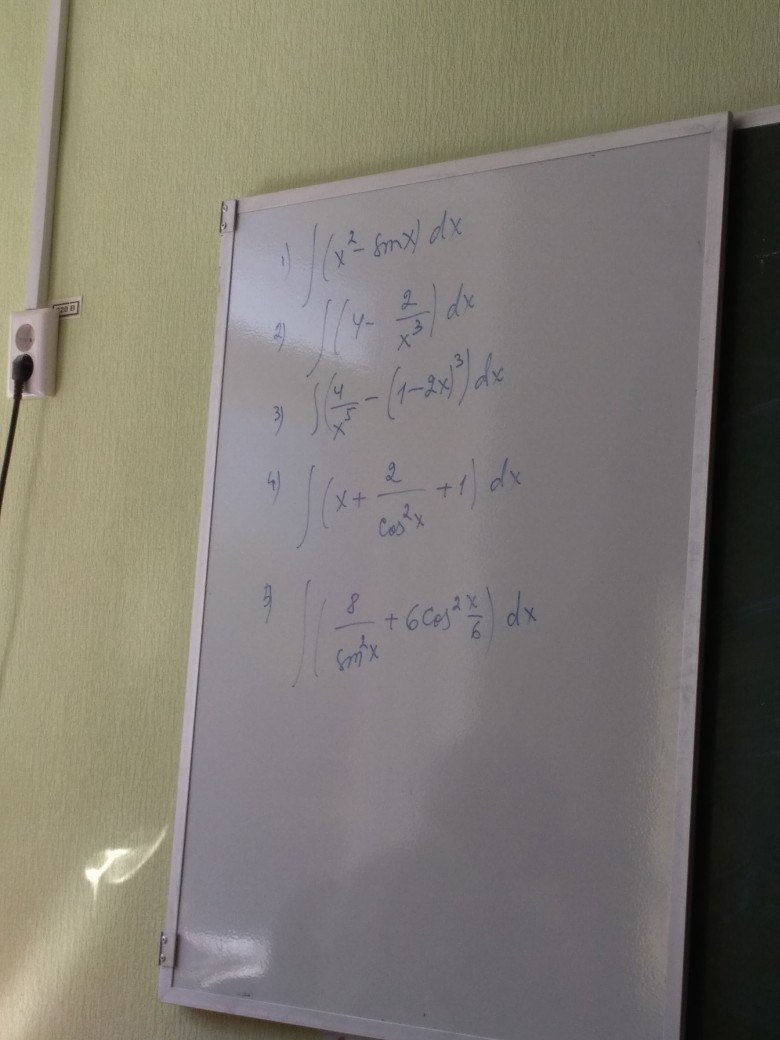 220 В
1) ∫(x² - sinx) dx
2) ∫(4 - 2/x³) dx
3) ∫(4/x⁵ - (1-2x)³) dx
4) ∫(x + 2/cos²x + 1) dx
5) ∫(8/sin²x + 6cos² x/6) dx